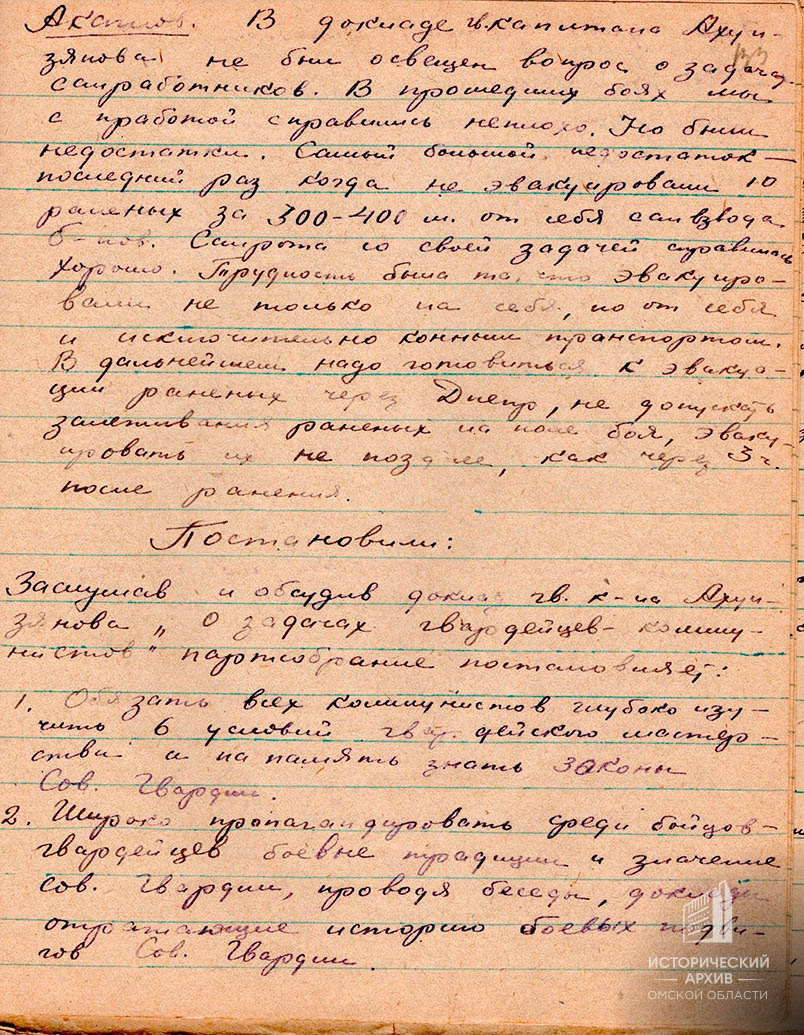 Акатов. В докладе гв. капитана Ахун-
133
зянова не был освещен вопрос о задачах
санработников. В прошедших боях мы
с работой справились неплохо. Но были
недостатки. Самый большой недостаток –
последний раз когда не эвакуировали 10
раненых за 300-400 м. от себя санвзвода
б-нов. Санрота со своей задачей справилась
хорошо. Трудность была та, что эвакуиро-
вали не только на себя, но от себя
и исключительно конным транспортом.
В дальнейшем надо готовиться к эвакуа-
ции раненых через Днепр, не допускать
залеживания раненых на поле боя, эваку-
ировать их не позднее, как через 3 ч.
после ранения.
Постановили:
Заслушав и обсудив доклад гв. к-на Ахун-
зянова „О задачах гвардейцев-комму-
нистов" партсобрание постановляет:
1. Обязать всех коммунистов глубоко изу-
чить 6 условий гвардейского мастер-
ства и на память знать законы
Сов. Гвардии.
2. Широко пропагандировать среди бойцов-
гвардейцев боевые традиции и значение
Сов. Гвардии, проводя беседы, доклады
отражающие историю боевых подви-
гов Сов. Гвардии.
ИСТОРИЧЕСКИЙ
АРХИВ
ОМСКОЙ ОБЛАСТИ